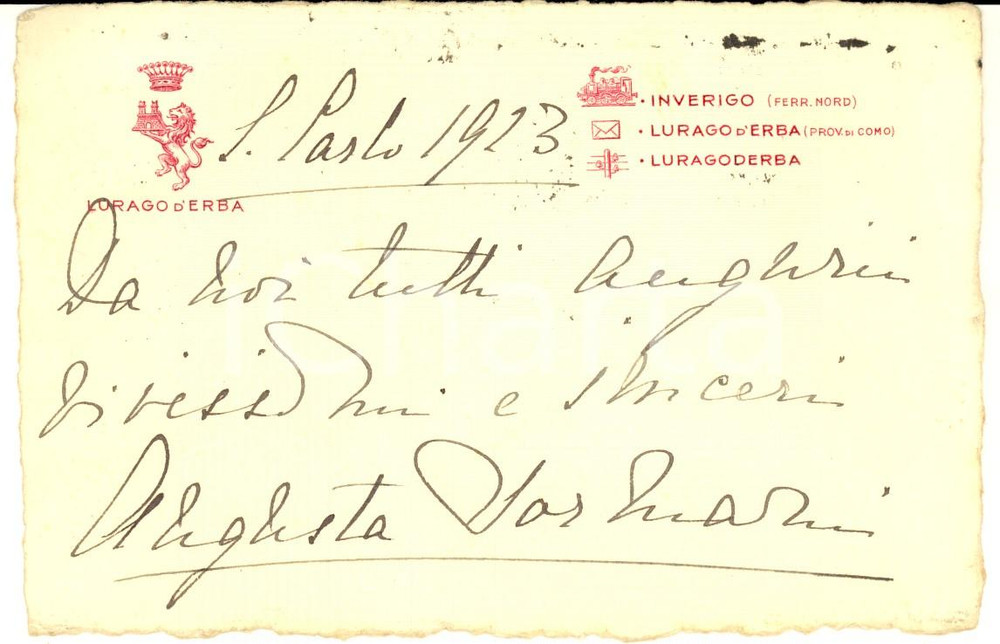 S. Carlo 1923
· INVERIGO (FERR. NORD)
· LURAGO D'ERBA (PROV. DI COMO)
· LURAGODERBA
LURAGO D'ERBA
Da noi tutti Auguri
vivissimi e sinceri
Augusta Sormani